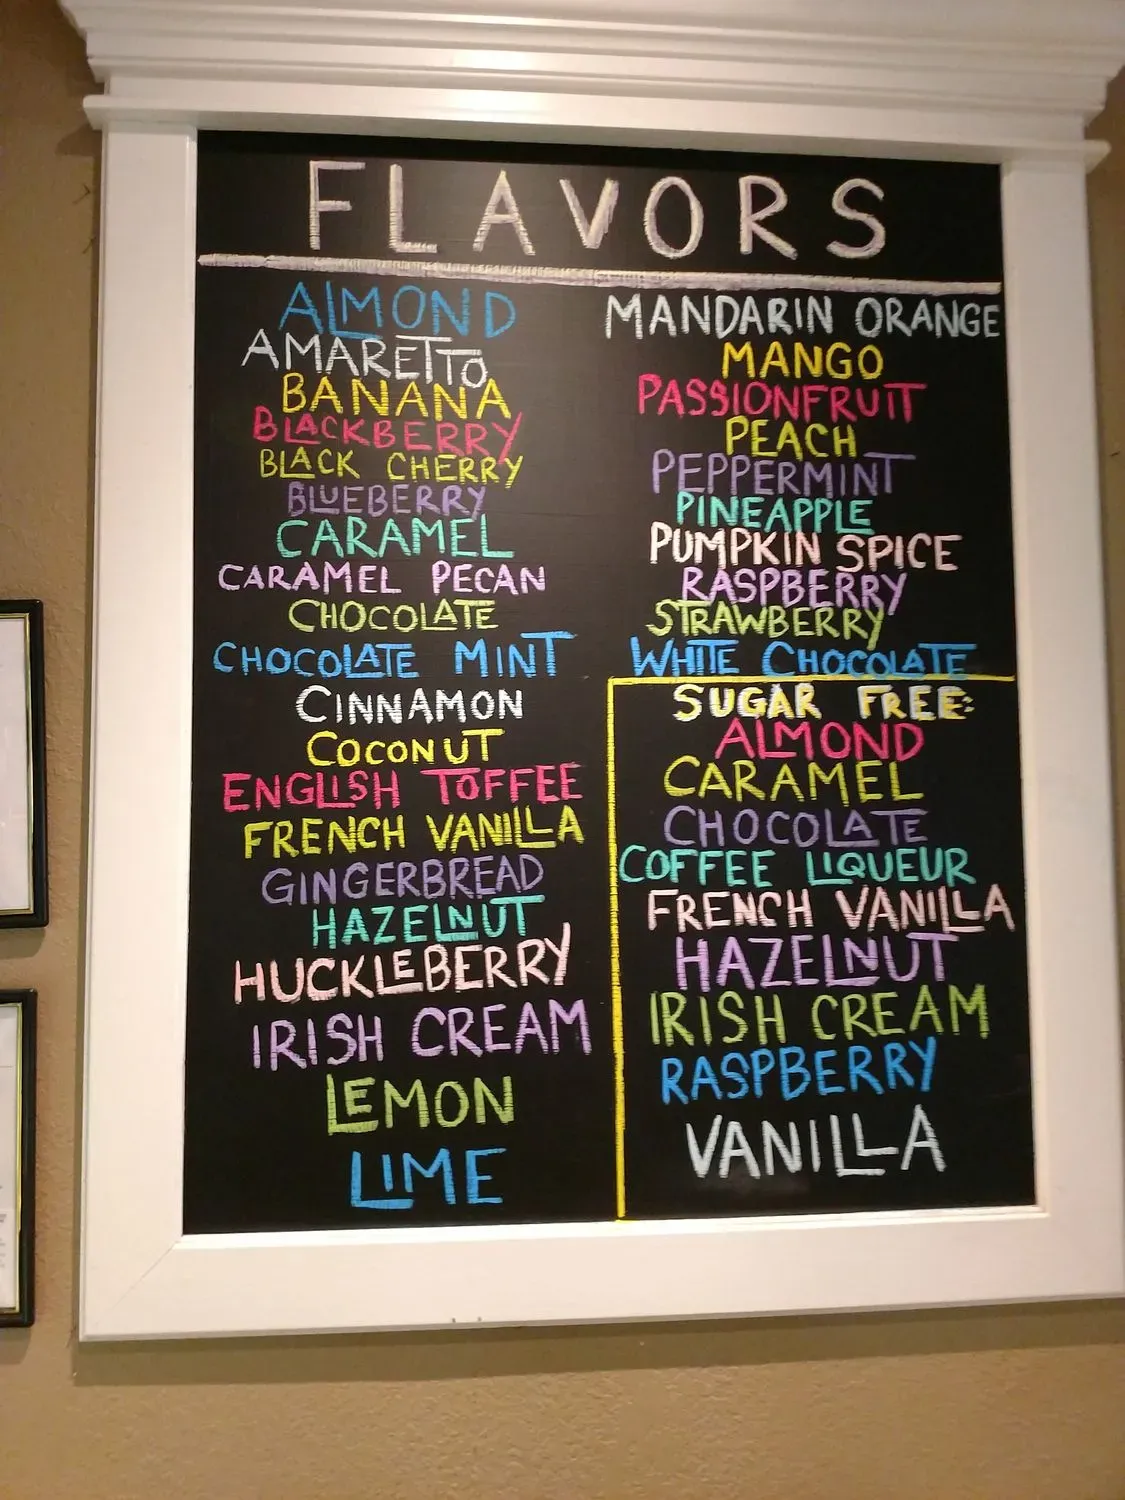 FLAVORS
ALMOND
AMARETTO
BANANA
BLACKBERRY
BLACK CHERRY
BLUEBERRY
CARAMEL
CARAMEL PECAN
CHOCOLATE
CHOCOLATE MINT
CINNAMON
COCONUT
ENGLISH TOFFEE
FRENCH VANILLA
GINGERBREAD
HAZELNUT
HUCKLEBERRY
IRISH CREAM
LEMON
LIME
MANDARIN ORANGE
MANGO
PASSIONFRUIT
PEACH
PEPPERMINT
PINEAPPLE
PUMPKIN SPICE
RASPBERRY
STRAWBERRY
WHITE CHOCOLATE
SUGAR FREE:
ALMOND
CARAMEL
CHOCOLATE
COFFEE LIQUEUR
FRENCH VANILLA
HAZELNUT
IRISH CREAM
RASPBERRY
VANILLA